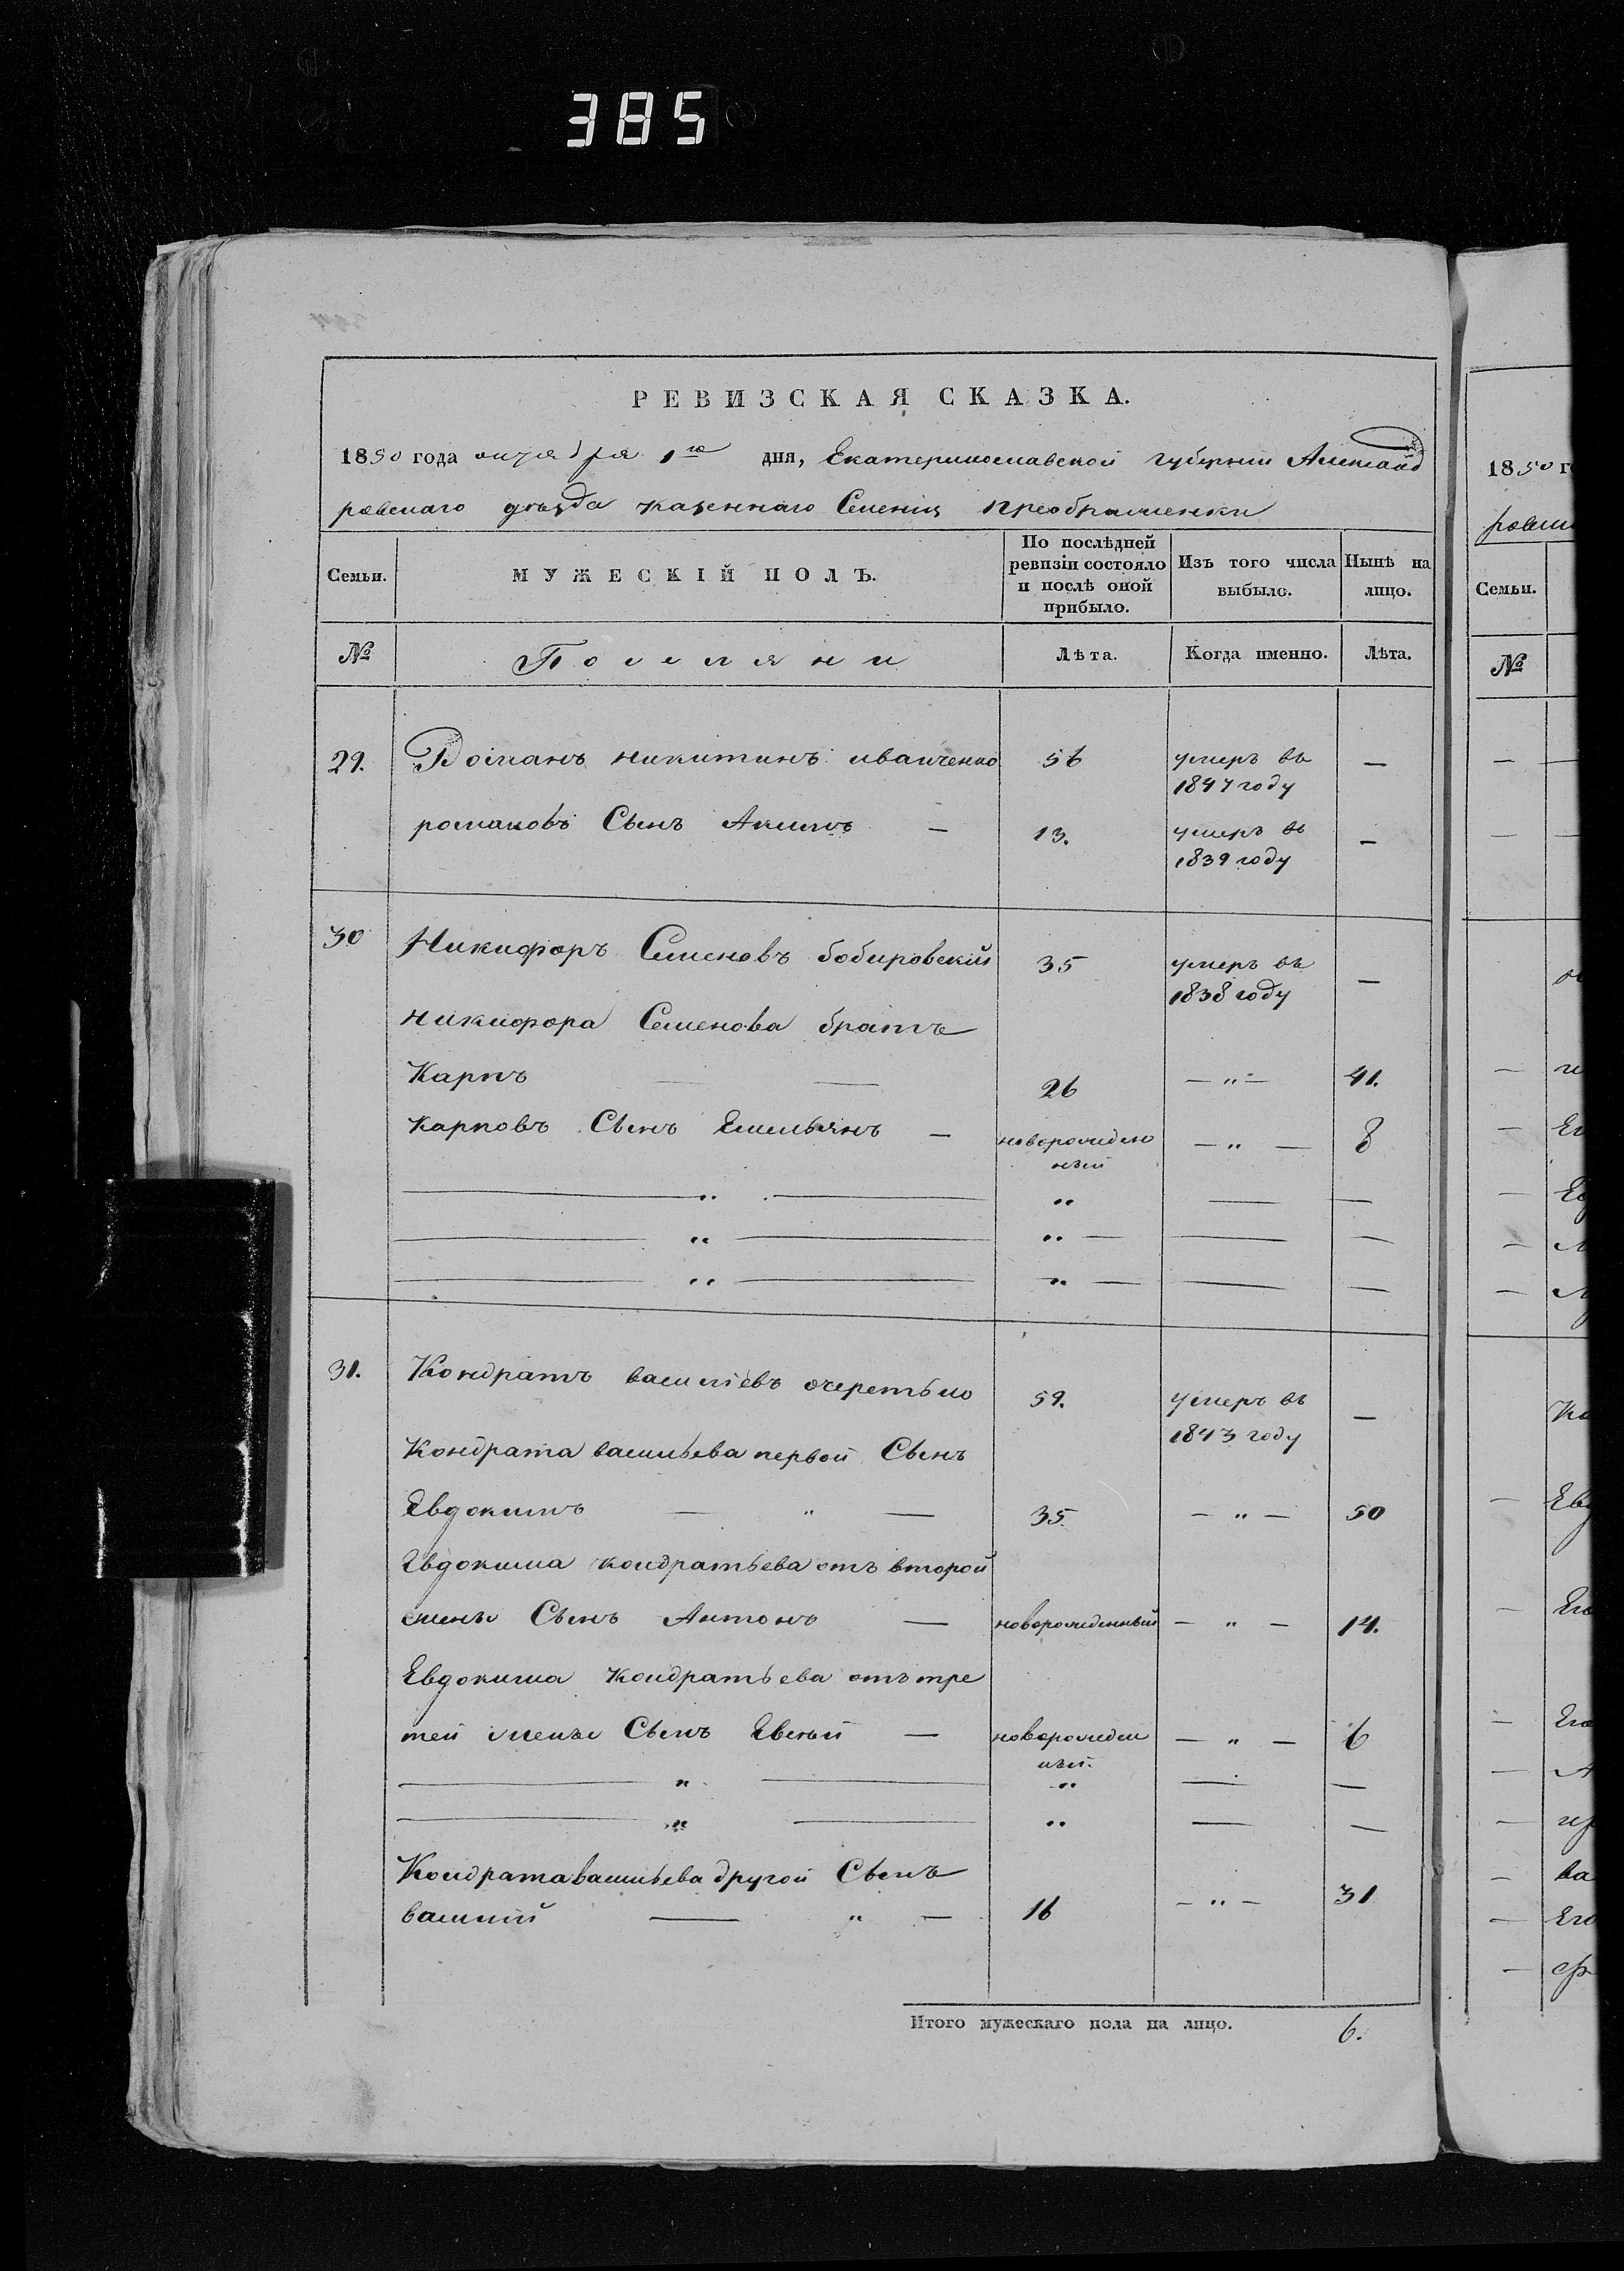 385
РЕВИЗСКАЯ СКАЗКА.
1850 года октября 1го дня, Екатеринославской губернии Александ
ровскаго уѣзда казеннаго Селения Преображенки
Семьи.
МУЖЕСКІЙ ПОЛЪ.
По послѣдней ревизіи состояло и послѣ оной прибыло.
Изъ того числа выбыло.
Ныпѣ на лицо.
№ Поселяни Лѣта. Когда именно. Лѣта.
29. Романъ никитинъ иванченко 56 умеръ въ 1847 году —
романовъ Сынъ Акимъ — 13. умеръ въ 1839 году —
30 Никифоръ Семеновъ бобировскій 35 умеръ въ 1838 году —
никифора Семенова братъ
Карпъ — — 26 — " — 41.
карповъ Сынъ Емельянъ — новорожден ный — " — 8
— " — " — —
— " — " — — —
— " — " — — —
31. Кондратъ васильевъ очеретько 59. умеръ въ 1843 году —
Кондрата васильева первой Сынъ
Евдокимъ — " — 35. — " — 50
Евдокима кондратьева отъ второй
жены Сынъ Антонъ — новорожденный — " — 14.
Евдокима Кондратьева отъ тре
тей жены Сынъ Евсей — новорожден ный — " — 6
— " — " — —
— " — " — —
Кондрата васильева другой Сынъ
василий — " — 16 — " — 31
Итого мужескаго пола на лицо. 6.
1850 г
Семьи.
№